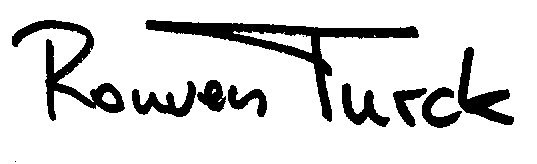 Rouven Turck